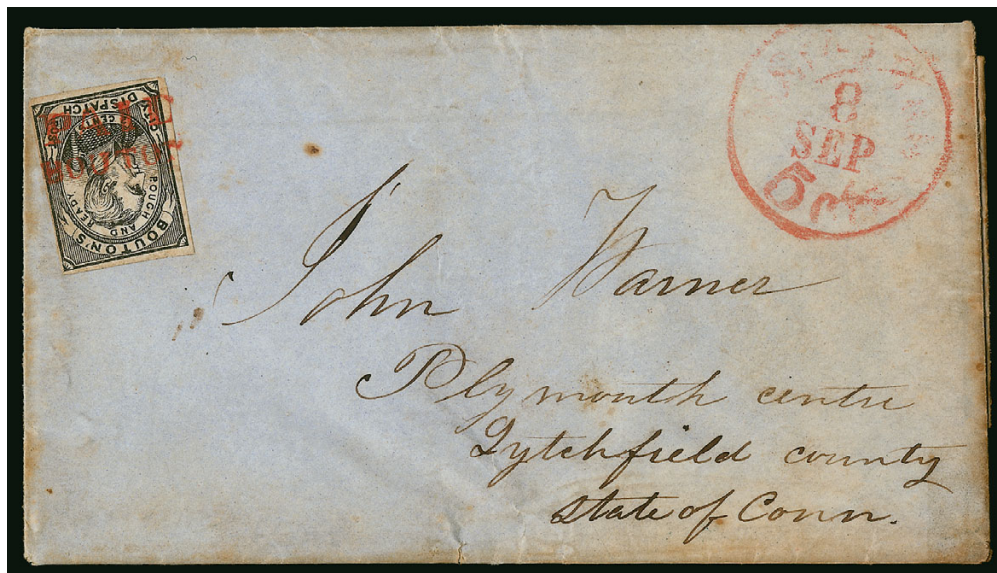 BOUTON'S
ROUGH AND READY
CITY DISPATCH POST
2 CENTS
PAID
BOUTON
8
SEP
5 cts
John Warner
Plymouth centre
Lytchfield county
state of Conn.